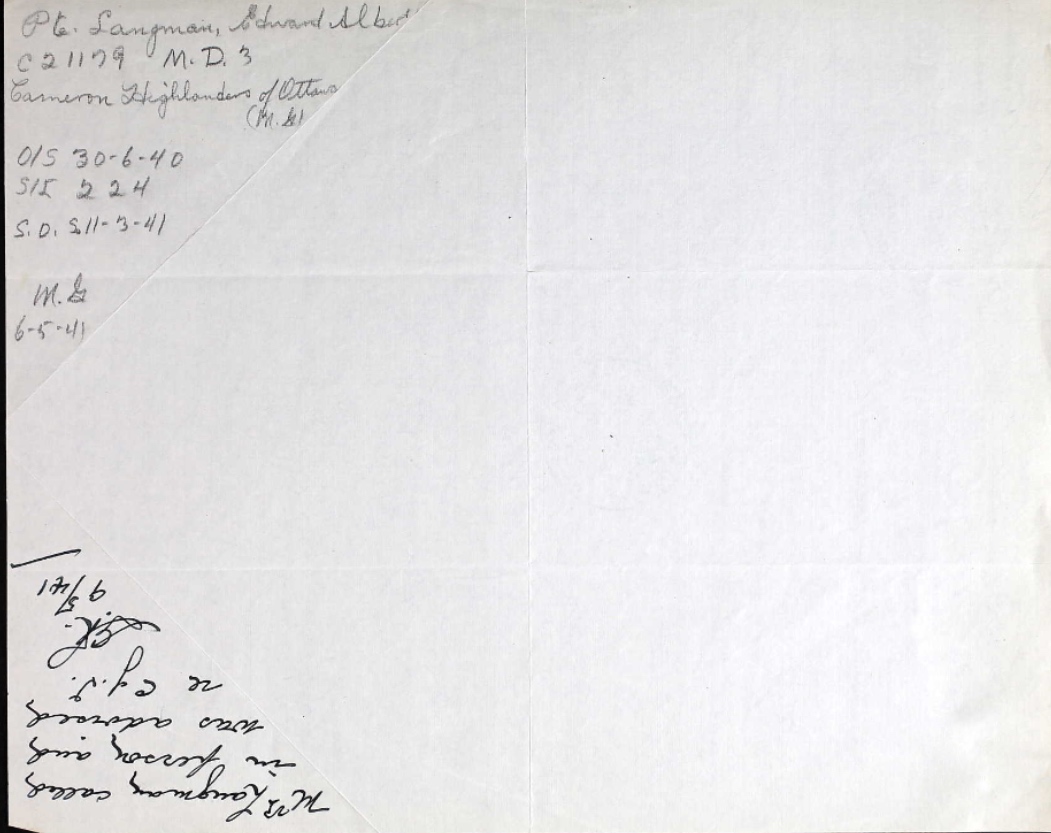 Pte. Langman, Edward Albert
C 21179 M.D. 3
Cameron Highlanders of Ottawa
(M.G)
O/S 30-6-40
S/I 224
S.O.S. 11-3-41
M.G
6-5-41
Mrs Langman called
in person and
was advised
re C.
9/5/41